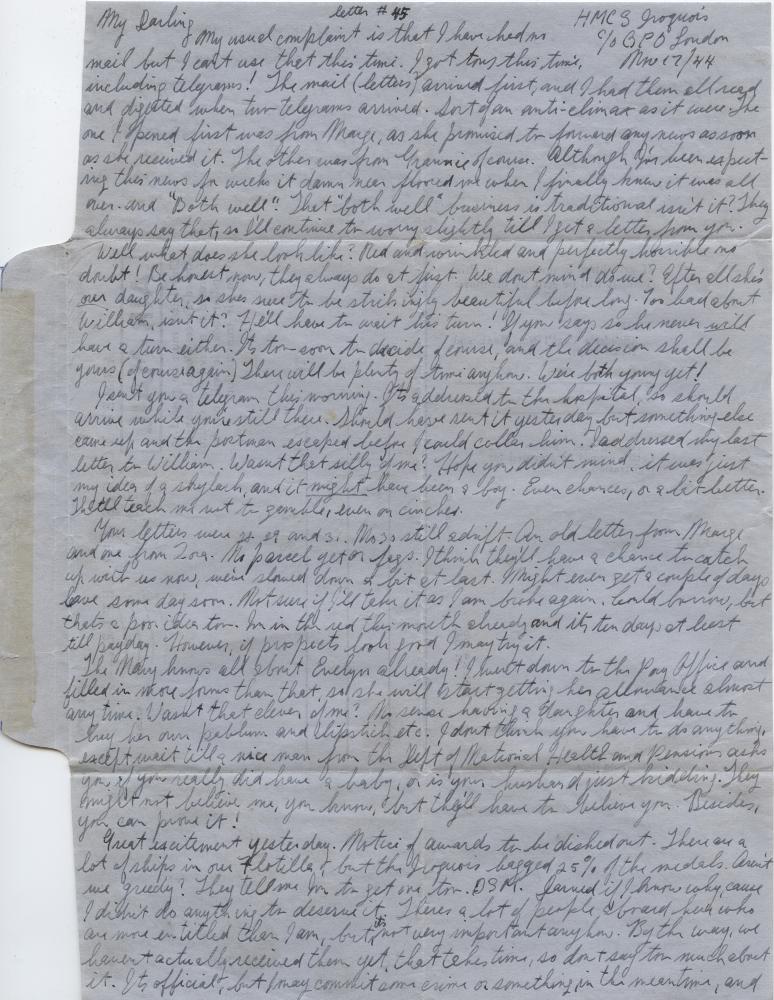 letter # 45
HMCS Iroquois
My Darling
c/o GPO London
My usual complaint is that I have had no
Nov 17/44
mail but I cant use that this time. I got tons this time,
including telegrams! The mail (letters) arrived first, and I had them all read
and digested when two telegrams arrived. Sort of an anti-climax as it were. The
one I opened first was from Marge, as she promised to forward any news as soon
as she received it. The other was from Grannie of course. Although I've been expect-
ing this news for weeks it damn near floored me when I finally knew it was all
over and "Both well"! That "both well" business is traditional isn't it? They
always say that, so I'll continue to worry slightly till I get a letter from you.
Well what does she look like? Red and wrinkled and perfectly horrible no
doubt! Be honest now, they always do at first. We dont mind do we? After all she's
our daughter, so shes sure to be strikingly beautiful before long. Too bad about
William, isnt it? He'll have to wait his turn! If you say so he never will
have a turn either. Its too soon to decide of course, and the decision shall be
yours (of course again) There will be plenty of time anyhow. We're both young yet!
I sent you a telegram this morning. Its addressed to the hospital, so should
arrive while you're still there. Should have sent it yesterday but something else
came up and the postman escaped before I could collar him. I addressed my last
letter to William. Wasnt that silly of me? Hope you didn't mind, it was just
my idea of a and it might have been a boy. Even chances, or a bit better.
That'll teach me not to gamble, even on cinches.
Your letters were 28, 29 and 31. No 30 still adrift. An old letter from Marge
and one from Zora. No parcel yet or fags. I think they'll have a chance to catch
up with us now, were slowed down a bit at last. Might even get a couple of days
leave some day soon. Not sure if I'll take it as I am broke again. Could borrow, but
thats a poor idea too. Im in the red this month already and its ten days at least
till payday. However, if prospects look good I may try it.
The Navy knows all about Evelyn already! I went down to the Pay Office and
filled in more forms than that, so she will start getting her allowance almost
any time. Wasnt that clever of me? No sense having a daughter and have to
buy her own pablum and lipstick etc. I dont think you have to do anything,
except wait till a nice man from the Dept of National Health and Pensions asks
you if you really did have a baby, or is your husband just kidding. They
might not believe me, you know, but they'll have to believe you. Besides,
you can prove it!
Great excitement yesterday. Notice of awards to be dished out. There are a
lot of ships in our Flotilla, but the Iroquois bagged 25% of the medals. Aren't
we greedy? They tell me Im to get one too. DSM. Darned if I know why, cause
I didn't do anything to deserve it. There's a lot of people aboard here who
are more entitled than I am, but its not very important anyhow. By the way, we
haven't actually received them yet, that takes time, so dont say too much about
it. Its official, but I may commit some crime or something in the meantime, and